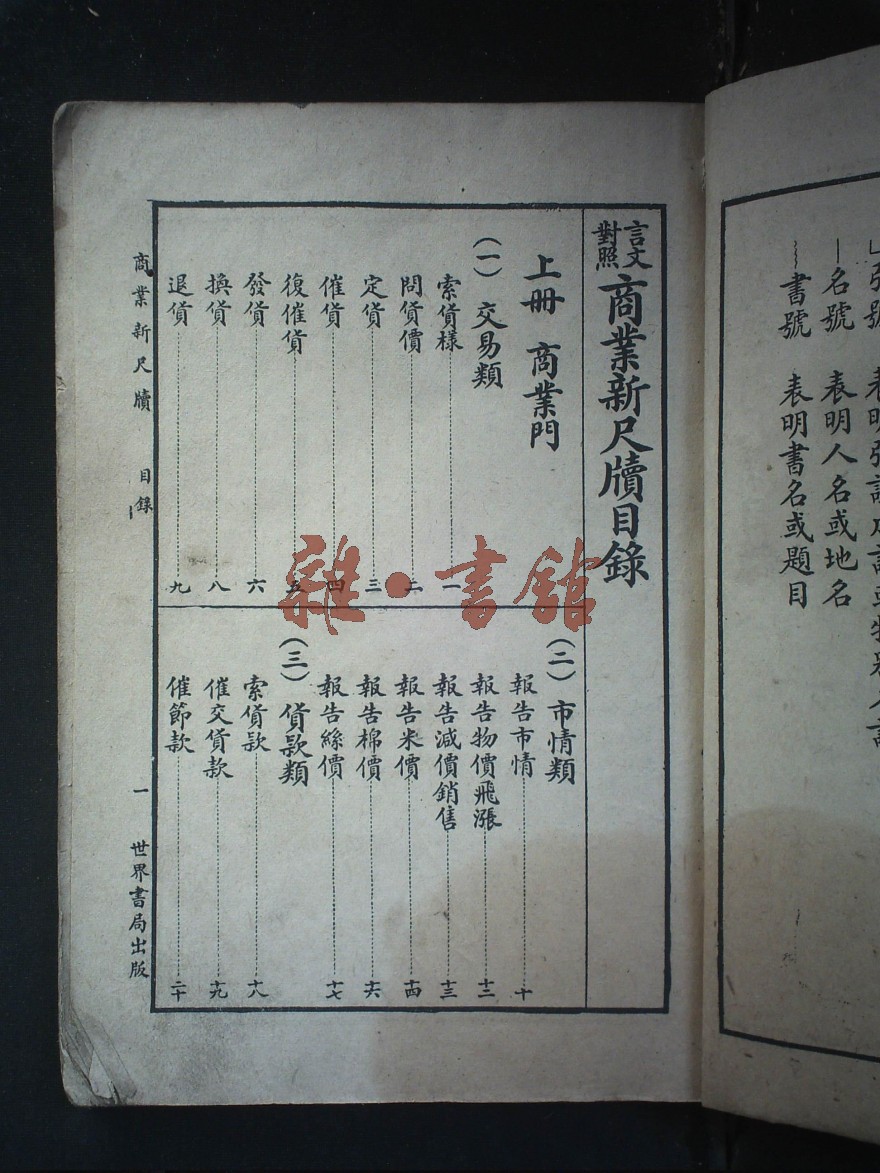 書號　表明書名或題目
名號　表明人名或地名
言文對照 商業新尺牘目錄
上冊　商業門
（一）交易類
索貨樣……一
問貨價……二
定貨……三
催貨……四
復催貨……五
發貨……六
換貨……八
退貨……九
（二）市情類
報告市情……十
報告物價飛漲……十二
報告減價銷售……十三
報告米價……十四
報告棉價……十六
報告絲價……十七
（三）貨款類
索貨款……十八
催交貨款……十九
催節款……二十
商業新尺牘　目錄　一　世界書局出版
雜·書館